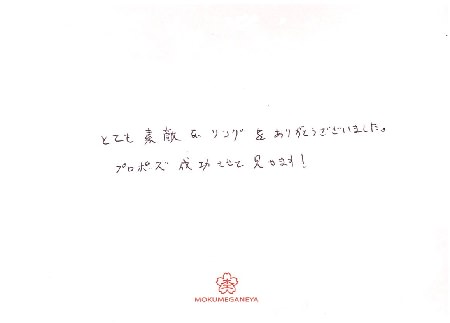 とても素敵なリングをありがとうございました。
プロポーズ成功させて見せます!
MOKUMEGANEYA